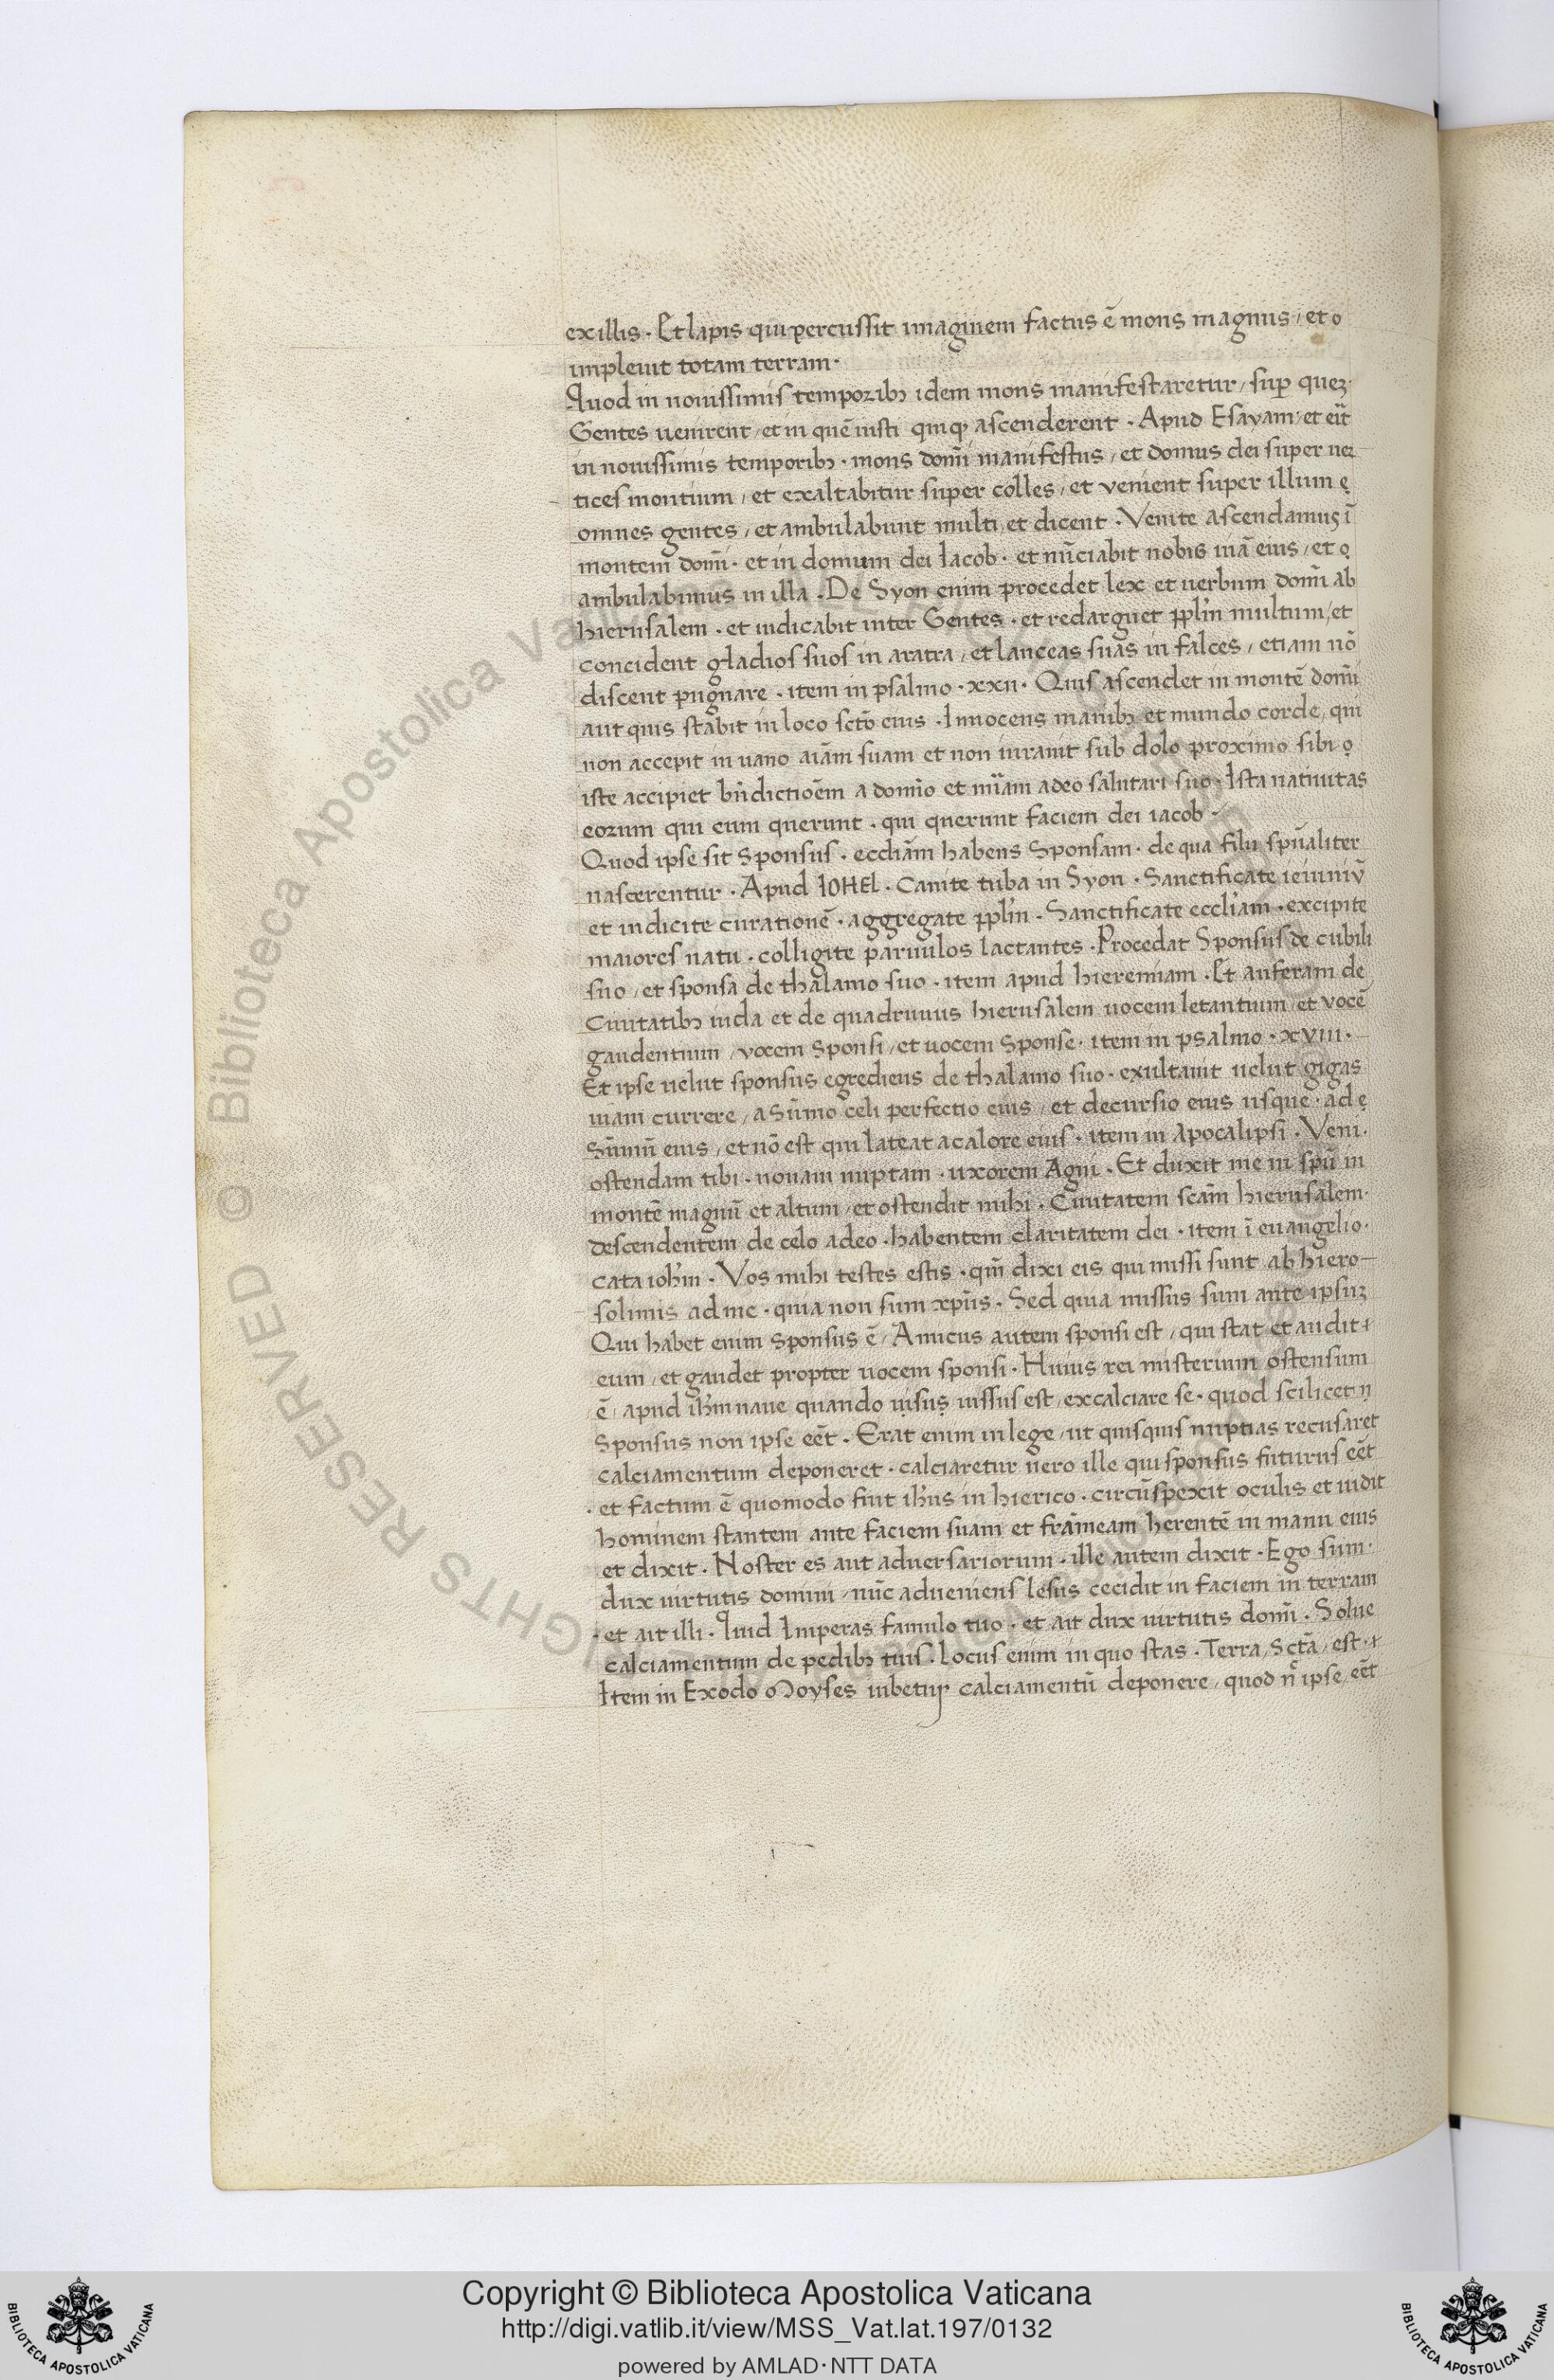 ex illis · Et lapis qui percussit imaginem factus ē mons magnus / et o
impleuit totam terram ·
Quod in nouissimis temporibꝫ idem mons manifestaretur / suꝑ queꝫ ·
Gentes uenirent / et in quē iusti quiqꝫ ascenderent · Apud Esayam / et eīt
in nouissimis temporibꝫ · mons domī manifestus / et domus dei super uer
tices montium / et exaltabitur super colles / et venient super illum
omnes gentes / et ambulabunt multi et dicent · Venite ascendamus ī
montem domī · et in domum dei Iacob · et nūciabit nobis uiā eius / et
ambulabimus in illa · De Syon enim procedet lex et uerbum domī ab
hierusalem · et iudicabit inter Gentes · et redarguet ppl'm multum / et
concident gladios suos in aratra / et lanceas suas in falces / etiam nō
discent pugnare · item in psalmo · xxii · Quis ascendet in montē domī
aut quis stabit in loco sctō eius · Innocens manibꝫ et mundo corde / qui
non accepit in uano aiām suam et non iurauit sub dolo proximo sibi
iste accipiet bn̄dictioēm a domīo et mīam a deo salutari suo · Ista natiuitas
eorum qui eum querunt · qui querunt faciem dei iacob ·
Quod ipse sit Sponsus · eccliām habens Sponsam · de qua filii spūaliter
nascerentur · Apud IOHEL · Canite tuba in Syon · Sanctificate ieiuniū
et indicite curationē · aggregate ppl'm · Sanctificate eccl'iam · excipite
maiores natu · colligite paruulos lactantes · Procedat Sponsus de cubili
suo / et sponsa de thalamo suo · item apud hieremiam · Et auferam de
Ciuitatibꝫ iuda et de quadruuiis hierusalem uocem letantium / et vocē
gaudentium / vocem sponsi / et uocem sponse · item in psalmo · xviii ·
Et ipse uelut sponsus egrediens de thalamo suo · exultauit uelut gigas
uiam currere / a Sūmo celi perfectio eius / et decursio eius usque · ad
Sūmū eius / et nō est qui lateat a calore eius · item in Apocalipsi · Veni ·
ostendam tibi · nouam nuptam · uxorem Agni · Et duxit me in spū in
montē magnū et altum / et ostendit mihi · Ciuitatem scām hierusalem ·
descendentem de celo a deo · habentem claritatem dei · item ī euangelio ·
cata ioh'm · Vos mihi testes estis · qm̄ dixi eis qui missi sunt ab hiero
solimis ad me · quia non sum xp̄us · Sed quia missus sum ante ipsuꝫ
Qui habet enim sponsus ē / Amicus autem sponsi est / qui stat et audit
eum / et gaudet propter uocem sponsi · Huius rei misterium ostensum
ē / apud ih'm naue quando ụịsụṣ iussus est / excalciare se · quod scilicet
Sponsus non ipse eēt · Erat enim in lege / ut quisquis nuptias recusaret
calciamentum deponeret · calciaretur uero ille qui sponsus futurus eēt
· et factum ē quomodo fuit ih'us in hierico · circūspexit oculis et uidit
hominem stantem ante faciem suam et frameam herentē in manu eius
et dixit · Noster es aut aduersariorum · ille autem dixit · Ego sum ·
dux uirtutis domini / nūc adueniens Iesus cecidit in faciem in terram
· et ait illi · Quid Imperas famulo tuo · et ait dux uirtutis domī · Solue
calciamentum de pedibꝫ tuis · Locus enim in quo stas · Terra / Sctā / est ·
Item in Exodo Moyses iubetur calciamentū deponere / quod n̄ ipse / eēt
Copyright © Biblioteca Apostolica Vaticana
http://digi.vatlib.it/view/MSS_Vat.lat.197/0132
powered by AMLAD·NTT DATA